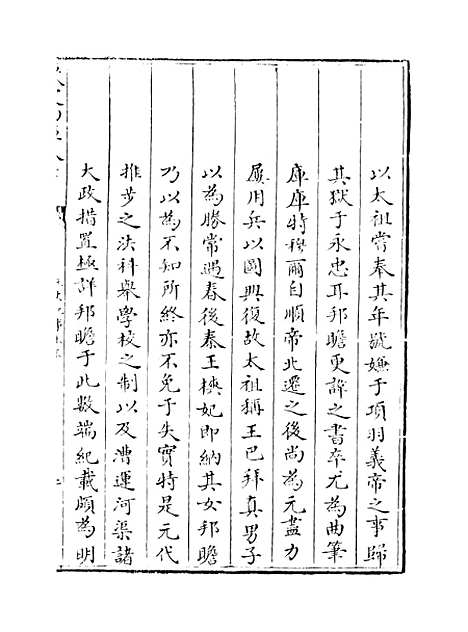 以太祖嘗奉其年號嫌于項羽義帝之事歸
其獄于永忠耳邦瞻更諱之書卒尤為曲筆
庫庫特穆爾自順帝北遷之後尚為元盡力
屢用兵以圖興復故太祖稱王巴拜真男子
以為勝常遇春後秦王樉妃即納其女邦瞻
乃以為不知所終亦不免于失實特是元代
推步之法科舉學校之制以及漕運河渠諸
大政措置極詳邦瞻于此數端紀載頗為明